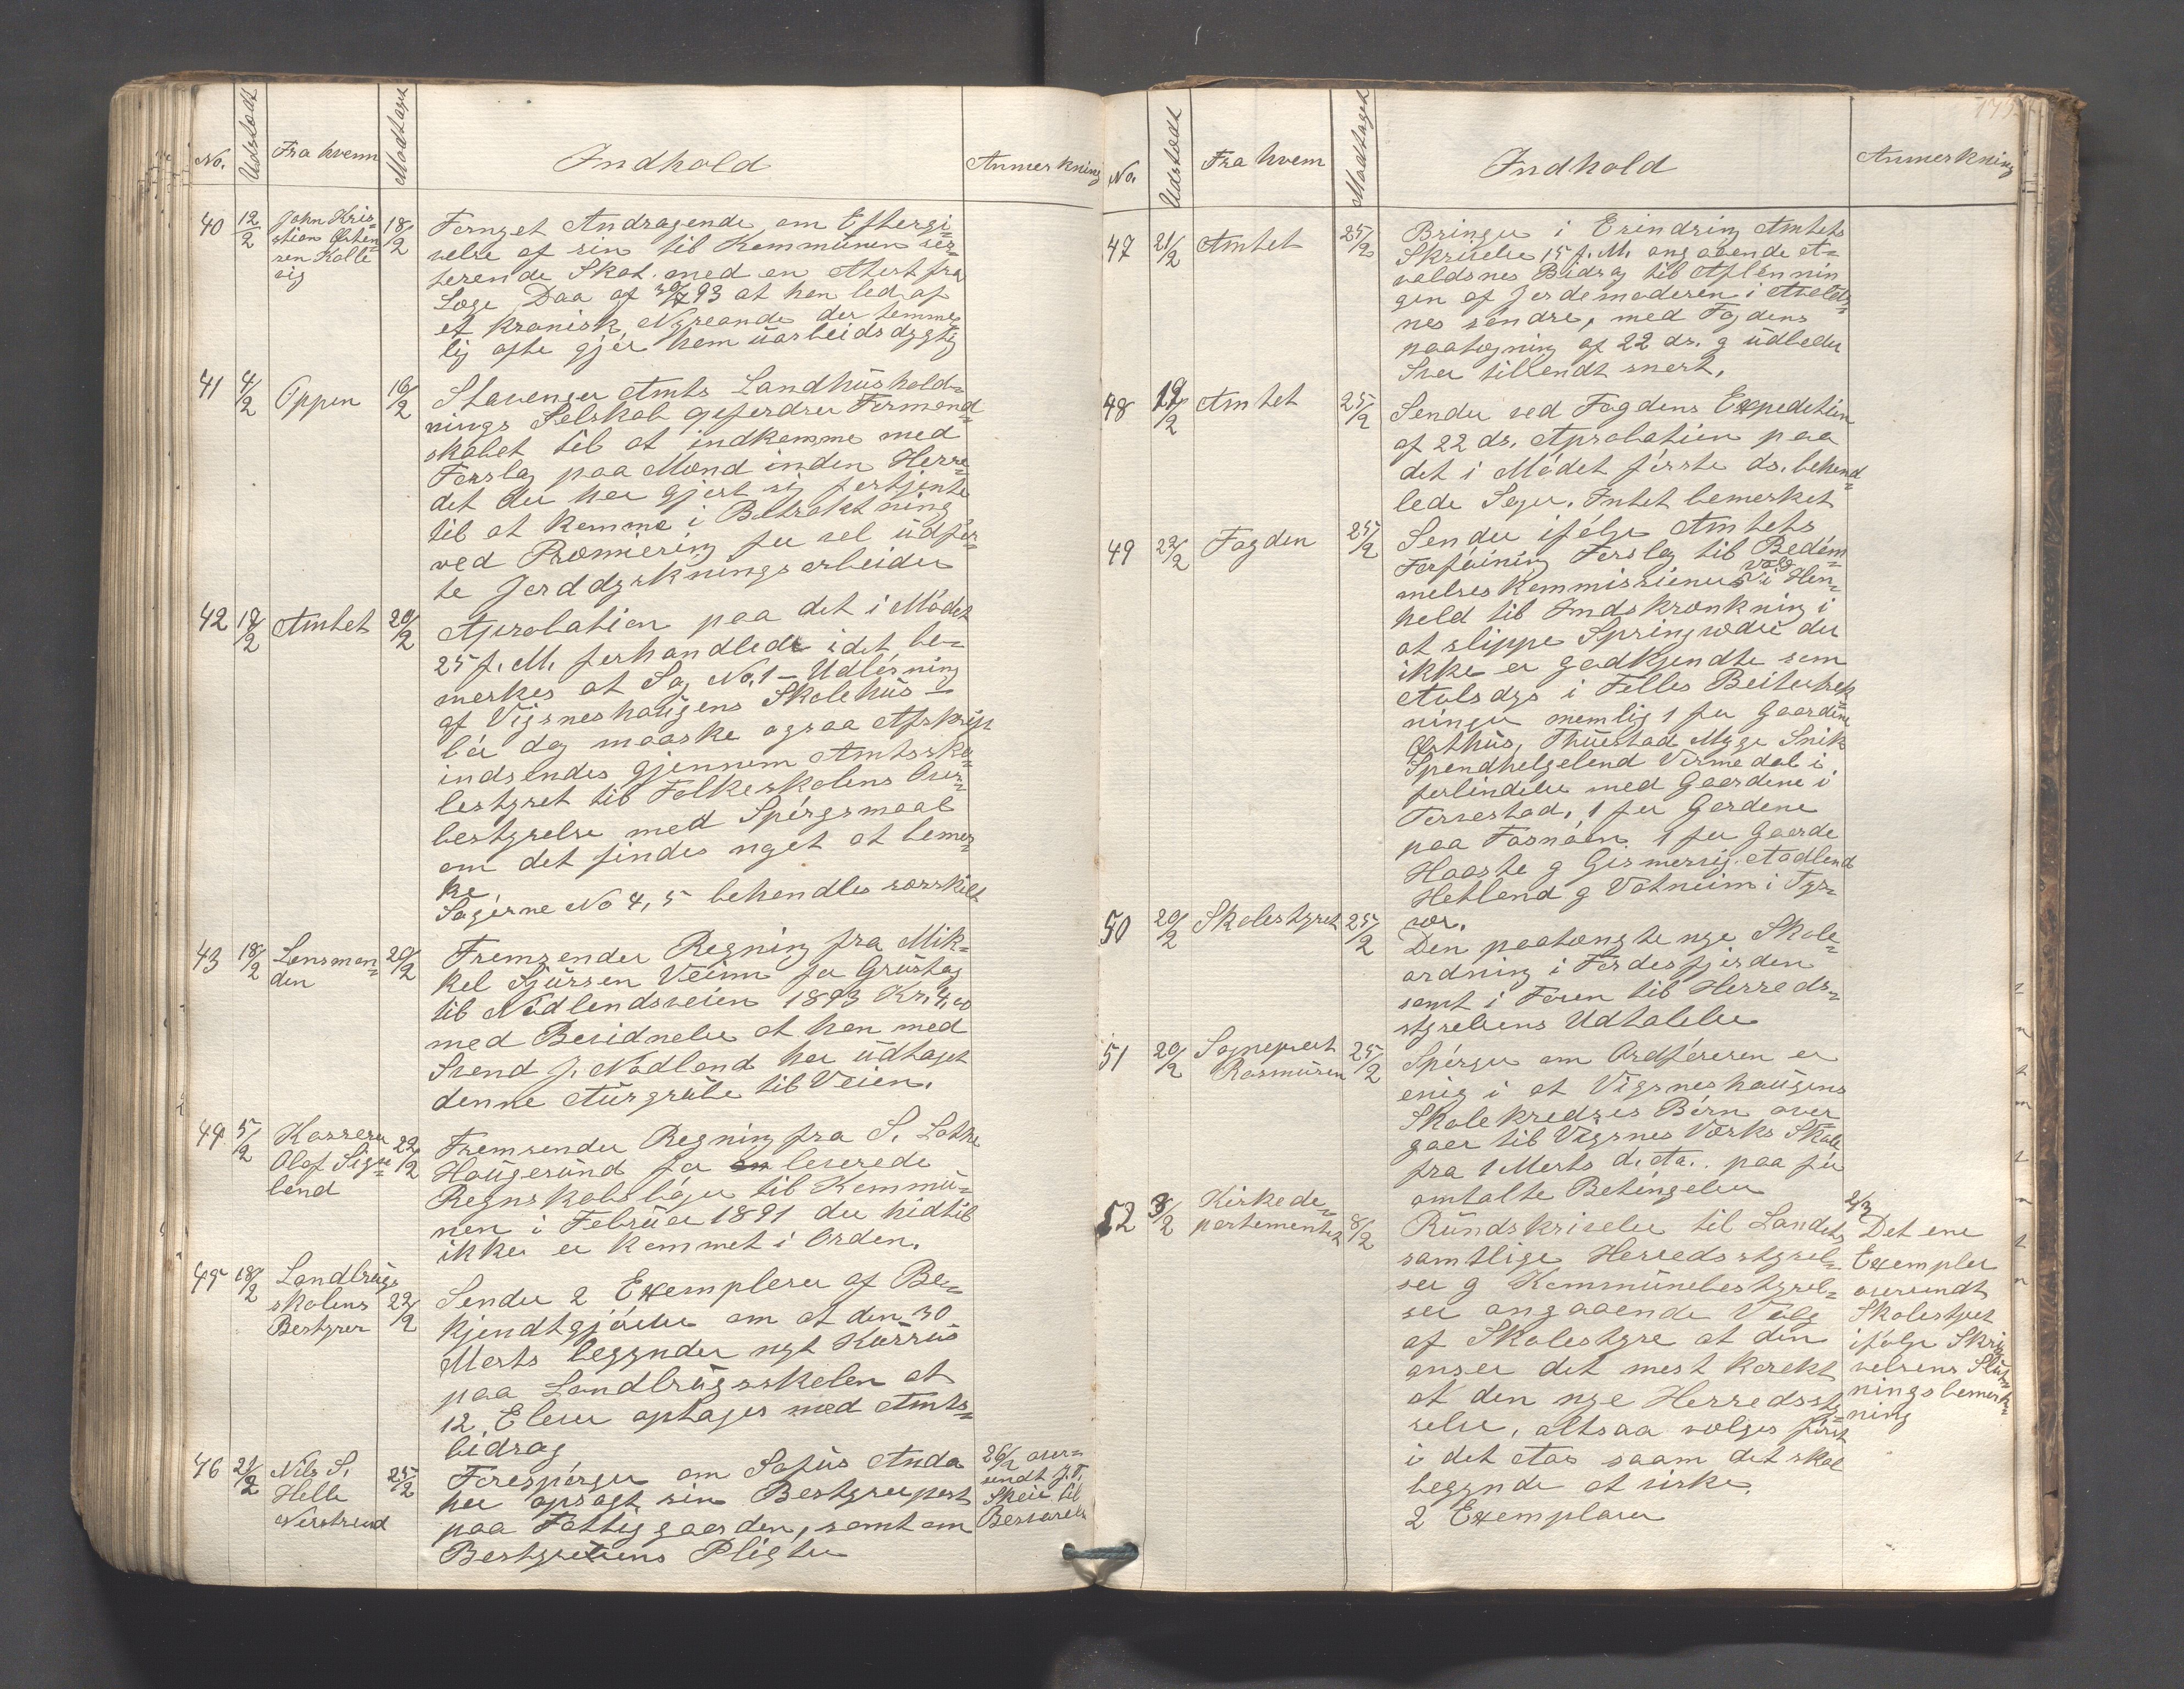 No. Udstædt Fra hvem Modtaget Indhold Anmerkning
40 12/2 John Kris-
stian Østen-
sen Kolle
vig 18/2
Fornyet Andragende om Eftergi-
velse af sin til Kommunen res-
terende Skat med en Atest fra
Læge Daa af 30/7 93 at han led af
et kronisk Nyreonde der temme-
lig ofte gjør ham uarbeidsdygtig
41 4/2 Oppen 16/2
Stavanger Amts Landhushold-
nings Selskab opfordrer Formand-
skabet til at indkomme med
Forslag paa Mænd inden Herre-
det der har gjort sig fortjente
til at komme i Betraktning
ved Præmiering for vel udfør-
te Jorddyrkningsarbeider
42 17/2 Amtet 20/2
Aprobation paa det i Mødet
25 f. M. forhandlede idet be-
merkes at Sag No. 1 - Udløsning
af Vigsneshaugens Skolehus -
bør dog maaske ogsaa Afskrift
indsendes gjennem Amtssko-
lestyret til Folkeskolens Over-
bestyrelse med Spørgsmaal
om det findes noget at bemer-
ke.
Sagerne No 4, 5 behandles særskilt
43 18/2 Lensman-
den 20/2
Fremsender Regning fra Mik-
kel Sjursen Veim for Grustag
til Nødlandsveien 1893 Kr. 4,40
med Bevidnelse at han med
Svend J. Nødland har udtaget
denne Aurgrube til Veien.
44. 5/2 Kasserer
Olof Signe-
land 22/2
Fremsender Regning fra S. Lothe
Haugesund for leverede
Regnskabsbøger til Kommu-
nen i Februar 1891 der hidtil
ikke er kommet i Orden.
45 18/2 Landbrugs
skolens
Bestyrer 22/2
Sender 2 Exemplerer af Be-
kjendtgjørelse om at den 30
Marts begynder nyt Kursus
paa Landbrugsskolen at
12. Elever optages med Amts-
bidrag
46 21/2 Nils S.
Helle
Nerstrand 25/2
Forespørger om Sofus Anda
har opsagt sin Bestyrerpost
paa Fattiggaarden, samt om
Bestyrerens Pligter
26/2 over-
sendt J. T.
Skeie til
Besvarels
No. Udstædt Fra hvem Modtaget Indhold Anmerkning
47 21/2 Amtet 25/2
Bringer i Erindring Amtets
Skrivelse 15 f. M. angaaende A-
valdsnes Bidrag til Aflønnin
gen af Jordemoderen i Avalds-
nes søndre, med Fogdens
paategning af 22 ds. g udbeder
Svar tilsendt snart.
48 19/2 Amtet 25/2
Sender ved Fogdens Expedition
af 22 ds. Aprobation paa
det i Mødet første ds. behand-
lede Sager. Intet bemerket
49 22/2 Fogden 25/2
Sender ifølge Amtets
Forføining Forslag til Bedøm
melses Kommissioners Valg i Hen-
hold til Indskrænkning i
at slippe Springvædre der
ikke er godkjendte som
Avlsdyr i Felles Beitestrek-
ninger nemlig 1 for Gaardene
Østhus, Thuestad Myge Snik
Spandhelgeland Virmedal i
forbindelse med Gaardene i
Torvestad, 1 for Gardene
paa Fosnøen 1 for Gaarde
Haaste g Gismervig. Aadland
Hetland g Vatneim i Tys-
vær.
50 20/2 Skolestyret 25/2
Den paatængte nye Skole-
ordning i Førdesfjorden
samt i Føren til Herreds-
styrelsens Udtalelse
51 20/2 Sognepræst
Rasmusen 25/2
Spørger om Ordføreren er
enig i at Vigsneshaugens
Skolekredses Børn over
gaar til Vigsnes Værks Skole
fra 1 Marts d. Aa. paa før
omtalte Betingelser
52 3/2 Kirkede-
partementet 8/2
Rundskrivelse til Landets
samtlige Herredsstyrel-
ser g Kommunebestyrel-
ser angaaende Valg
af Skolestyre at den
anser det mest korekt
at den nye Herredssty-
relse, altsaa vælges først
i det Aar saam det skal
begynde at virke.
2 Exemplarer
2/3
Det ene
Exempler
oversendt
Skolestyret
ifølge Skri-
velsens Slut-
ningsbemerk-
ning